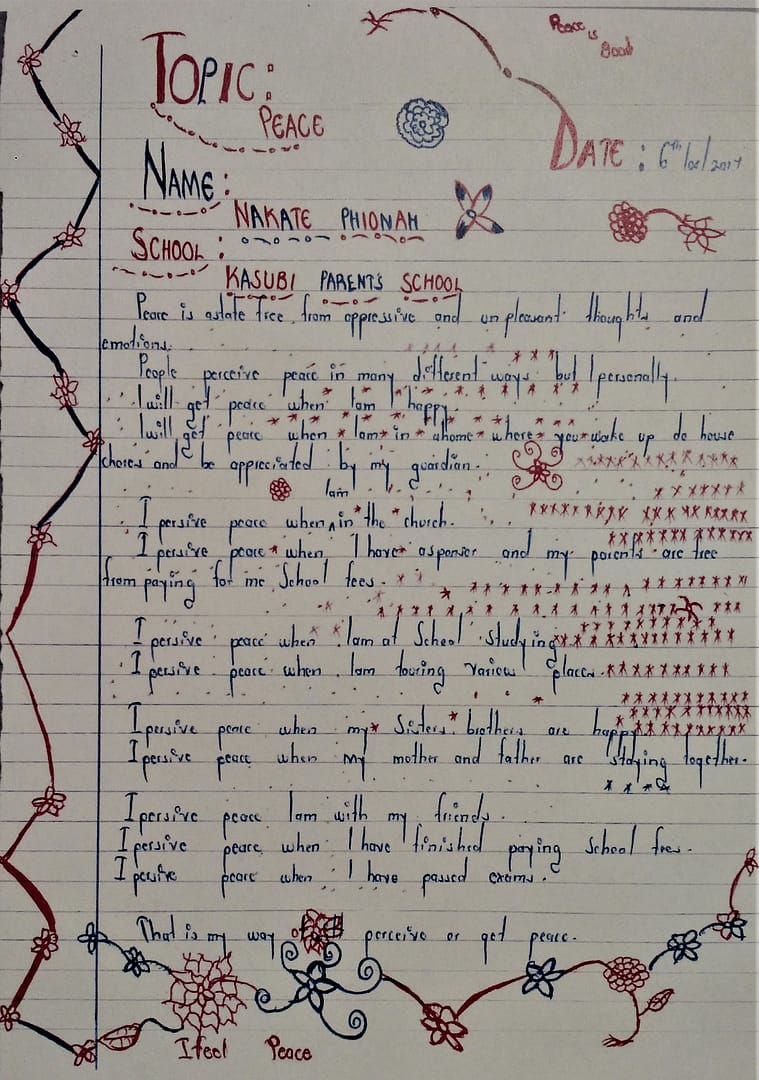 Peace
is
Good
TOPIC:
PEACE
DATE: 6th/02/2017
NAME:
NAKATE PHIONAH
SCHOOL:
KASUBI PARENT'S SCHOOL
Peace is astate free from oppressive and unpleasant thoughts and
emotions.
People perceive peace in many different ways but I personally.
I will get peace when Iam happy.
I will get peace when Iam in ahome where you wake up do house
chores and be appreciated by my guardian.
Iam
I persive peace when in the church.
I persive peace when I have asponser and my parents are free
from paying for me School fees.
I persive peace when Iam at School Studying
I persive peace when Iam touring various places.
I persive peace when my Sisters brothers are happy
I persive peace when my mother and father are staying together.
I persive peace Iam with my friends.
I persive peace when I have finished paying School fees.
I persive peace when I have passed exams.
That is my way of perceive or get peace.
I feel Peace